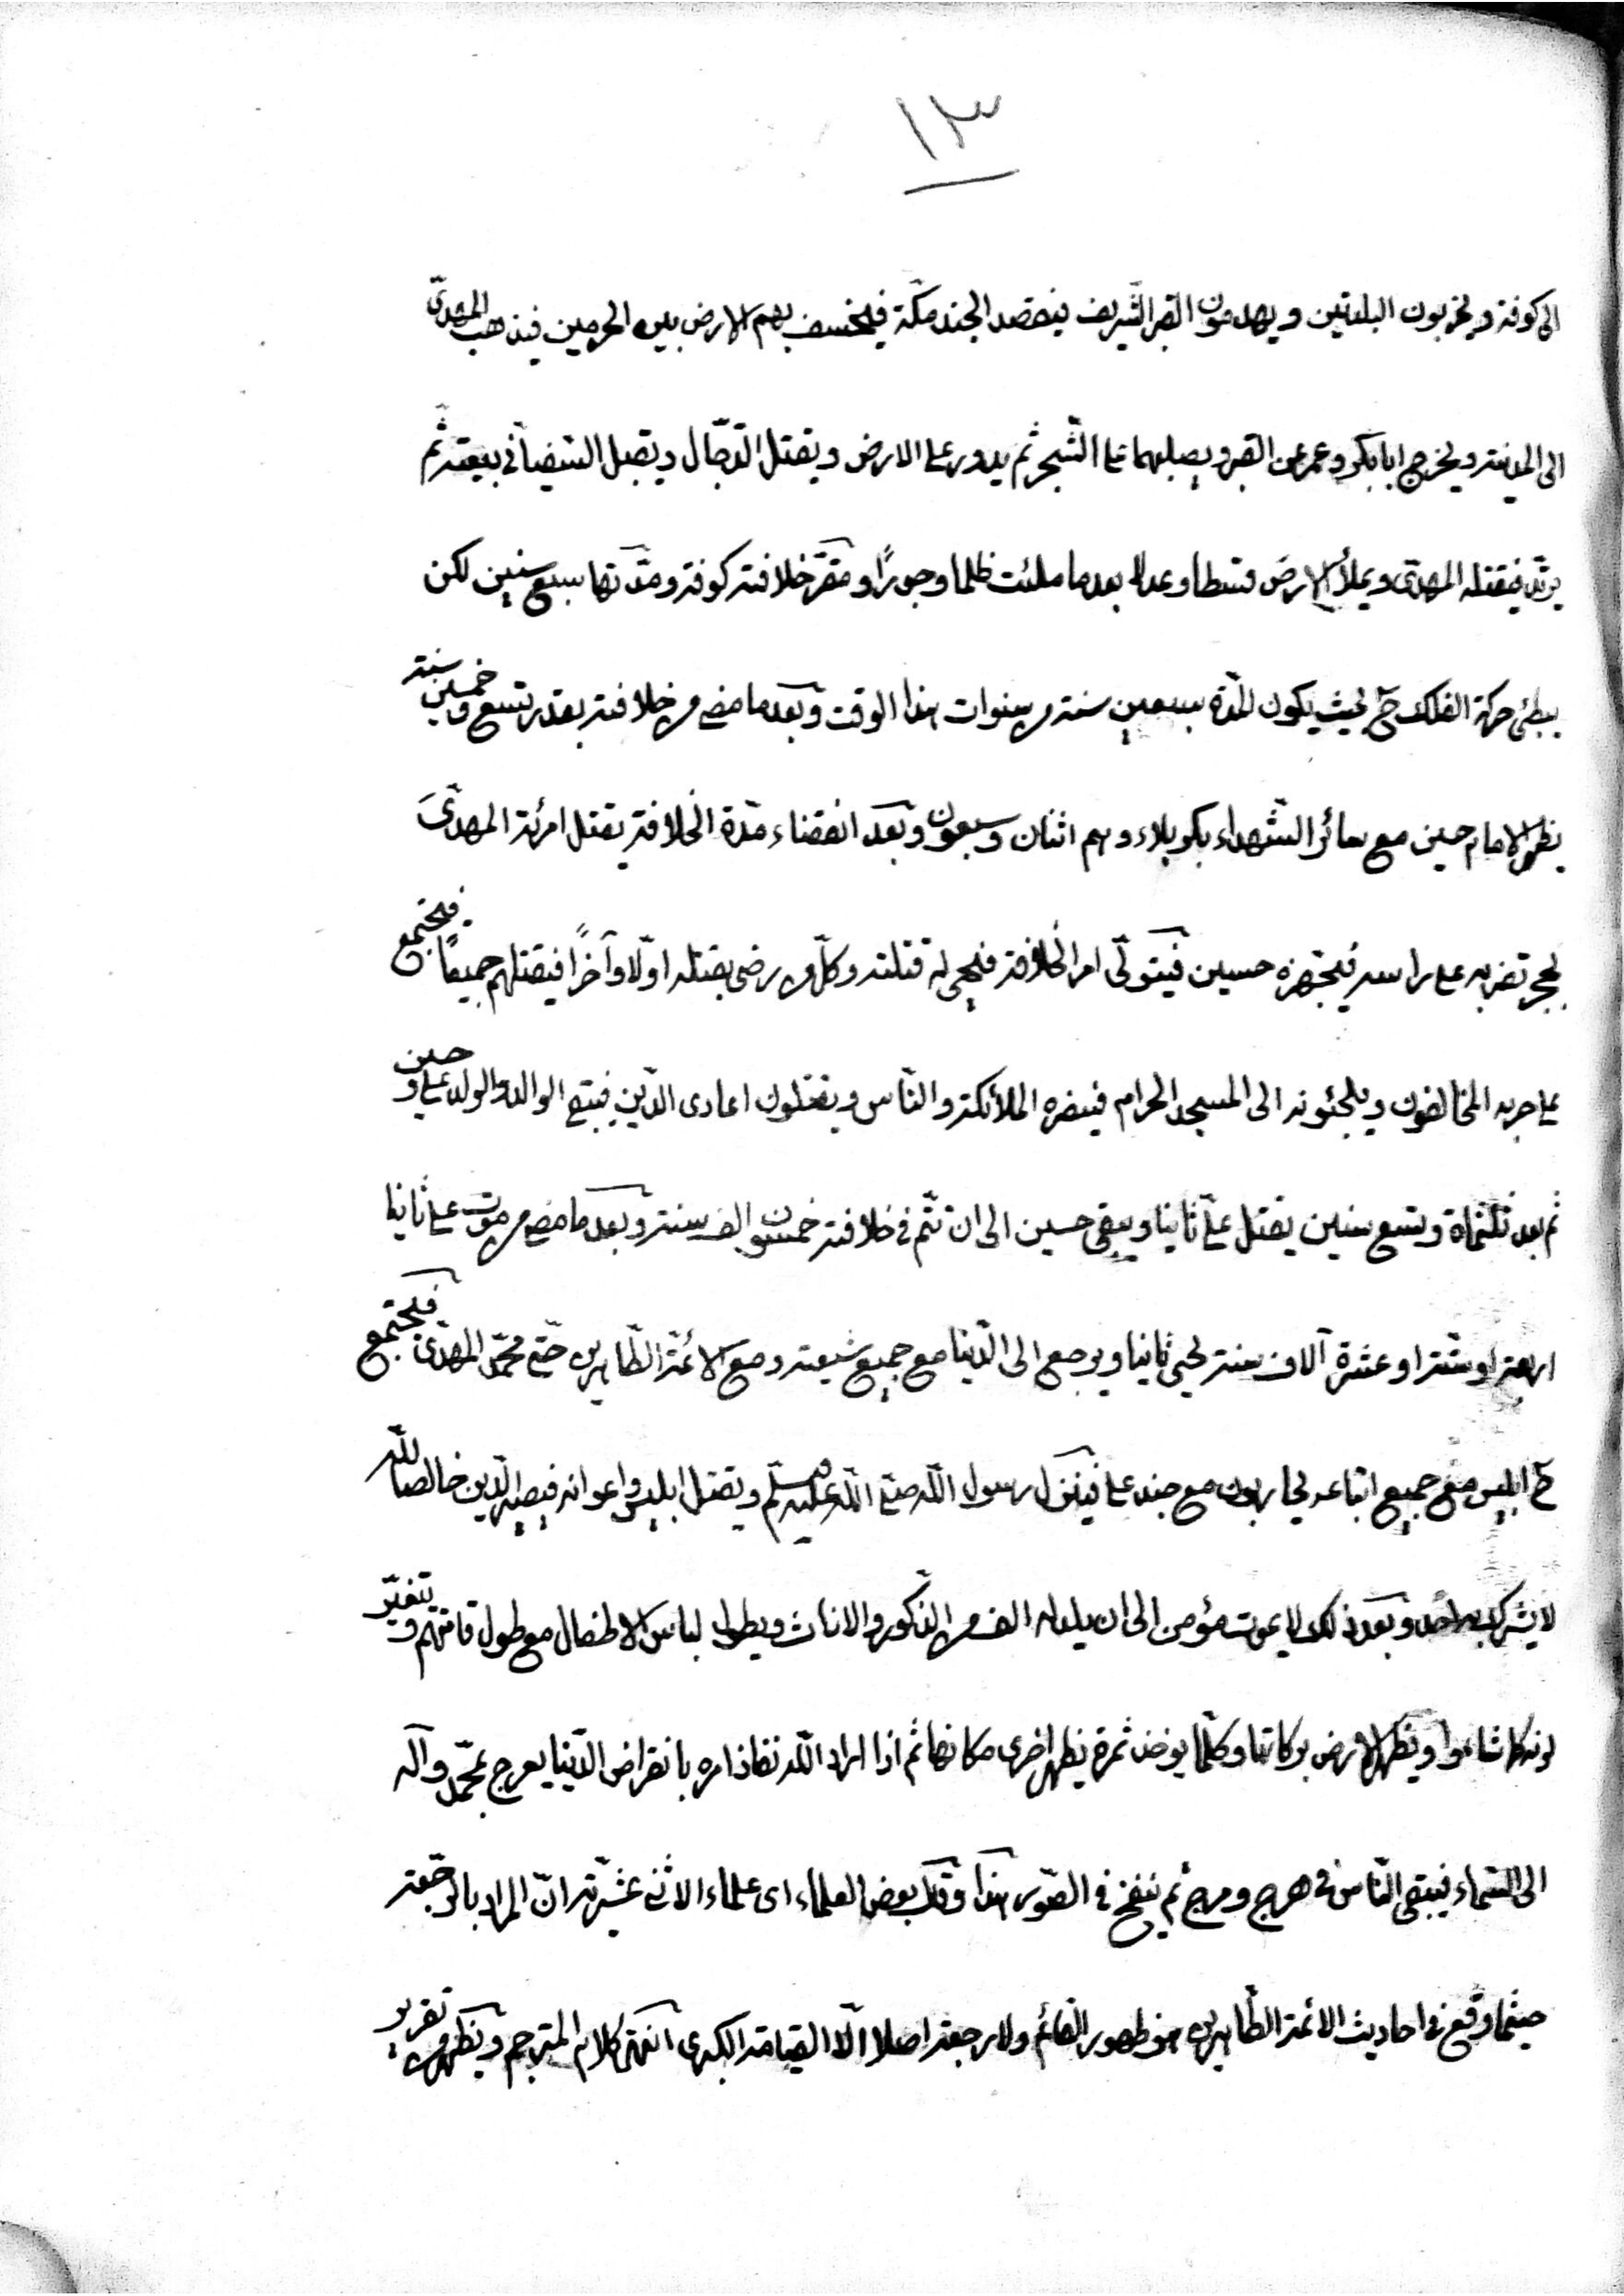 ١٣
الى كوفة ويخربون البلدتين ويهدمون القبر الشّريف فيقصد الجند مكّة فيخسف بهم الارض بين الحرمين فيذهب المهدىّ
الى المدينة ويخرج ابابكر وعمر عن القبر ويصلبهما على الشّجر ثم يدور على الارض ويقتل الدّجّال ويقبل السّفيانى بيعته ثم
يرتدّ فيقتله المهدىّ ويملأ الارض قسطا وعدلا بعد ما ملئت ظلما وجورًا ومقرّ خلافته كوفة ومدّتها سبع سنين لكن
يبطئ حركة الفلك ح بحيث يكون المدّة سبعين سنة من سنوات هذا الوقت وبعد ما مضى من خلافته بقدر تسع وخمسين سنة
يظهر الامام حسين مع سائر الشّهداء بكربلاء وهم اثنان وسبعون وبعد انقضاء مدّة الخلافة يقتل امرئة المهدىّ
بحجر تضربه على راسه فيجهزه حسين فيتولّى امر الخلافة فيحيى له قتلته وكلّ من رضى بقتله اولا وآخرًا فيقتلهم جميعًا فيجتمع
على حربه المخالفون ويلجئونه الى المسجد الحرام فينصره الملائكة والنّاس ويقتلون اعادى الدّين فيبقى الوالد والولد على وحسين
ثم بعد ثلثمائة وتسع سنين يقتل علىّ ثانيا ويبقى حسين الى ان تتم فى خلافته خمسون الف سنة وبعد ما مضى من موت على ثانيا
اربعة او ستة او عشرة آلاف سنة يحيى ثانيا ويرجع الى الدّنيا مع جميع شيعته ومع الائمّة الطّاهرين حتى محمّد المهدىّ فيجتمع
ح ابليس مع جميع اتباعه يحاربون مع جند على فينزل رسول اللّه صلى اللّه عليه وسلّم ويقتل ابليس واعوانه فيصير الدّين خالصا للّه
لا يشرك به احد وبعد ذلك لا يموت مؤمن الى ان يلد له الف من الذّكور والاناث ويطول لباس الاطفال مع طول قامتهم وتغيّر
لونه كما شاءوا ويظهر الارض بركاتها وكلّما يوخذ ثمرة يظهر اخرى مكانها ثم اذا اراد اللّه نفاذ امره بانقراض الدّنيا يعرج بمحمّد وآله
الى السّماء فيبقى النّاس فى هرج ومرج ثم ينفخ فى الصّور هذا وقال بعض العلماء اى علماء الاثنى عشريّة انّ المراد بالرّجعة
حيثما وقع فى احاديث الائمّة الطّاهرين هو ظهور القائم ولا رجعة اصلا الّا القيامة الكبرى انتهى كلام المترجم ويظهر من تقرير